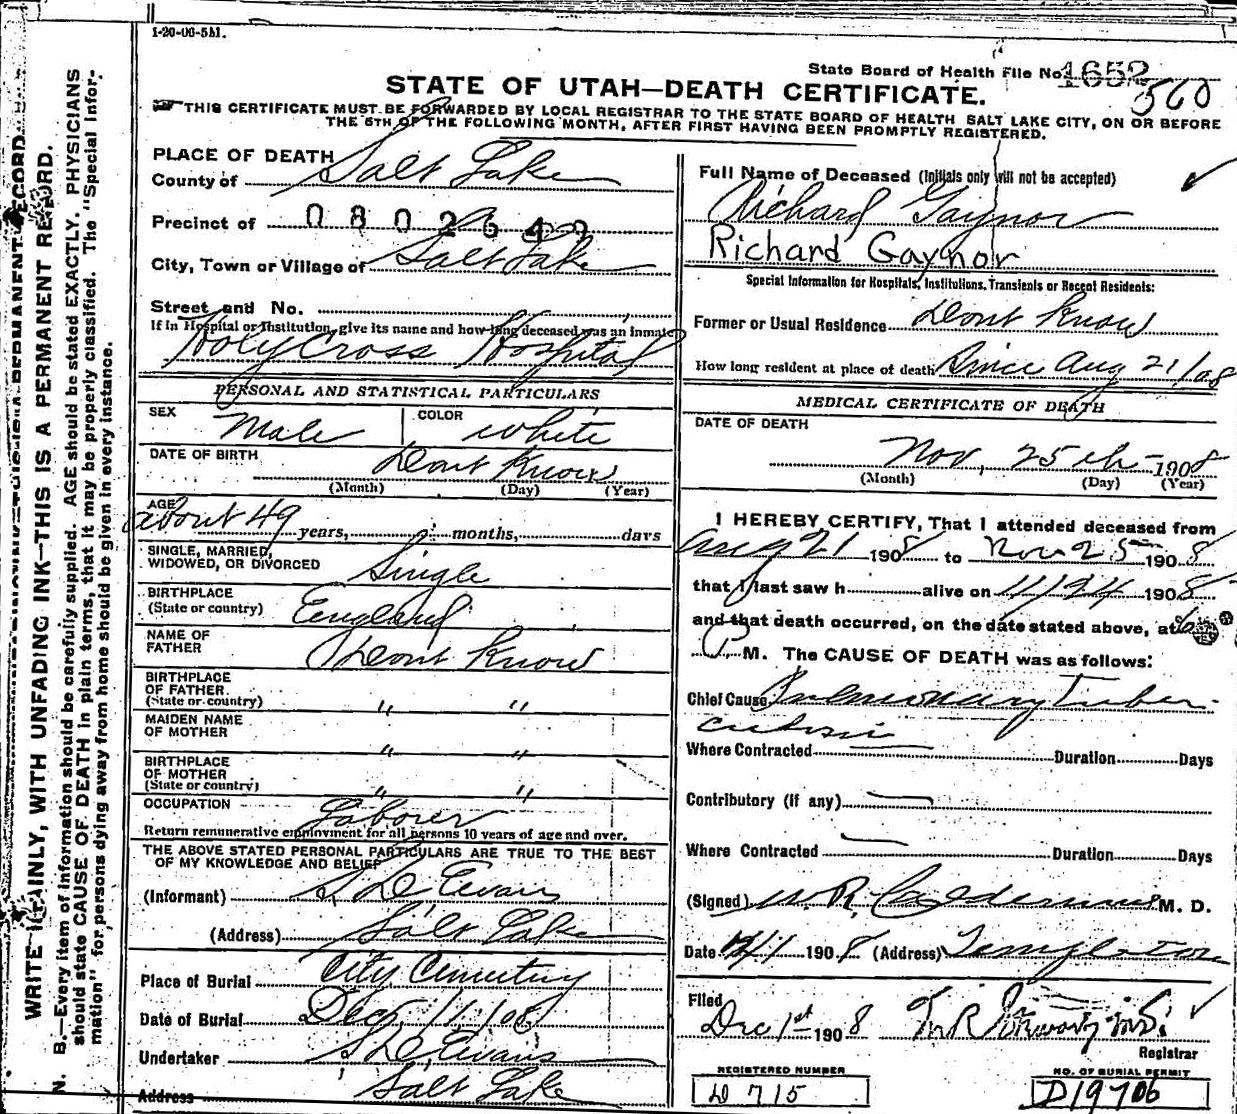 1-20-06-5M.
State Board of Health File No. 1652
560
STATE OF UTAH—DEATH CERTIFICATE.
THIS CERTIFICATE MUST BE FORWARDED BY LOCAL REGISTRAR TO THE STATE BOARD OF HEALTH SALT LAKE CITY, ON OR BEFORE
THE 5TH OF THE FOLLOWING MONTH, AFTER FIRST HAVING BEEN PROMPTLY REGISTERED.
WRITE PLAINLY, WITH UNFADING INK—THIS IS A PERMANENT RECORD.
N. B.—Every item of information should be carefully supplied. AGE should be stated EXACTLY. PHYSICIANS
should state CAUSE OF DEATH in plain terms, that it may be properly classified. The "Special Infor-
mation" for persons dying away from home should be given in every instance.
PLACE OF DEATH
County of Salt Lake
Precinct of 0802640
City, Town or Village of Salt Lake
Street and No.
If in Hospital or Institution, give its name and how long deceased was an inmate
Holy Cross Hospital
PERSONAL AND STATISTICAL PARTICULARS
SEX Male COLOR White
DATE OF BIRTH Dont Know
(Month) (Day) (Year)
AGE about 49 years, months, days
SINGLE, MARRIED,
WIDOWED, OR DIVORCED Single
BIRTHPLACE
(State or country) England
NAME OF
FATHER Dont Know
BIRTHPLACE
OF FATHER
(State or country) " "
MAIDEN NAME
OF MOTHER " "
BIRTHPLACE
OF MOTHER
(State or country) " "
OCCUPATION Laborer
Return remunerative employment for all persons 10 years of age and over.
THE ABOVE STATED PERSONAL PARTICULARS ARE TRUE TO THE BEST
OF MY KNOWLEDGE AND BELIEF
(Informant) S. D. Evans
(Address) Salt Lake
Place of Burial City Cemetery
Date of Burial Dec, 1/08
Undertaker S. D. Evans
Address Salt Lake
Full Name of Deceased (Initials only will not be accepted)
Richard Gaynor
Richard Gaynor
Special Information for Hospitals, Institutions, Transients or Recent Residents:
Former or Usual Residence Dont Know
How long resident at place of death Since Aug 21/08
MEDICAL CERTIFICATE OF DEATH
DATE OF DEATH
Nov, 25th 1908
(Month) (Day) (Year)
I HEREBY CERTIFY, That I attended deceased from
Aug 21 1908 to Nov 25 1908
that I last saw h alive on 11/24 1908
and that death occurred, on the date stated above, at 6
P. M. The CAUSE OF DEATH was as follows:
Chief Cause Pulmonary Tuber-
culosis
Where Contracted Duration Days
Contributory (if any)
Where Contracted Duration Days
(Signed) W. R. M. D.
Date 12/1 1908 (Address) Templeton
Filed
Dec 1st 1908
Registrar
REGISTERED NUMBER
D 715
NO. OF BURIAL PERMIT
D19706